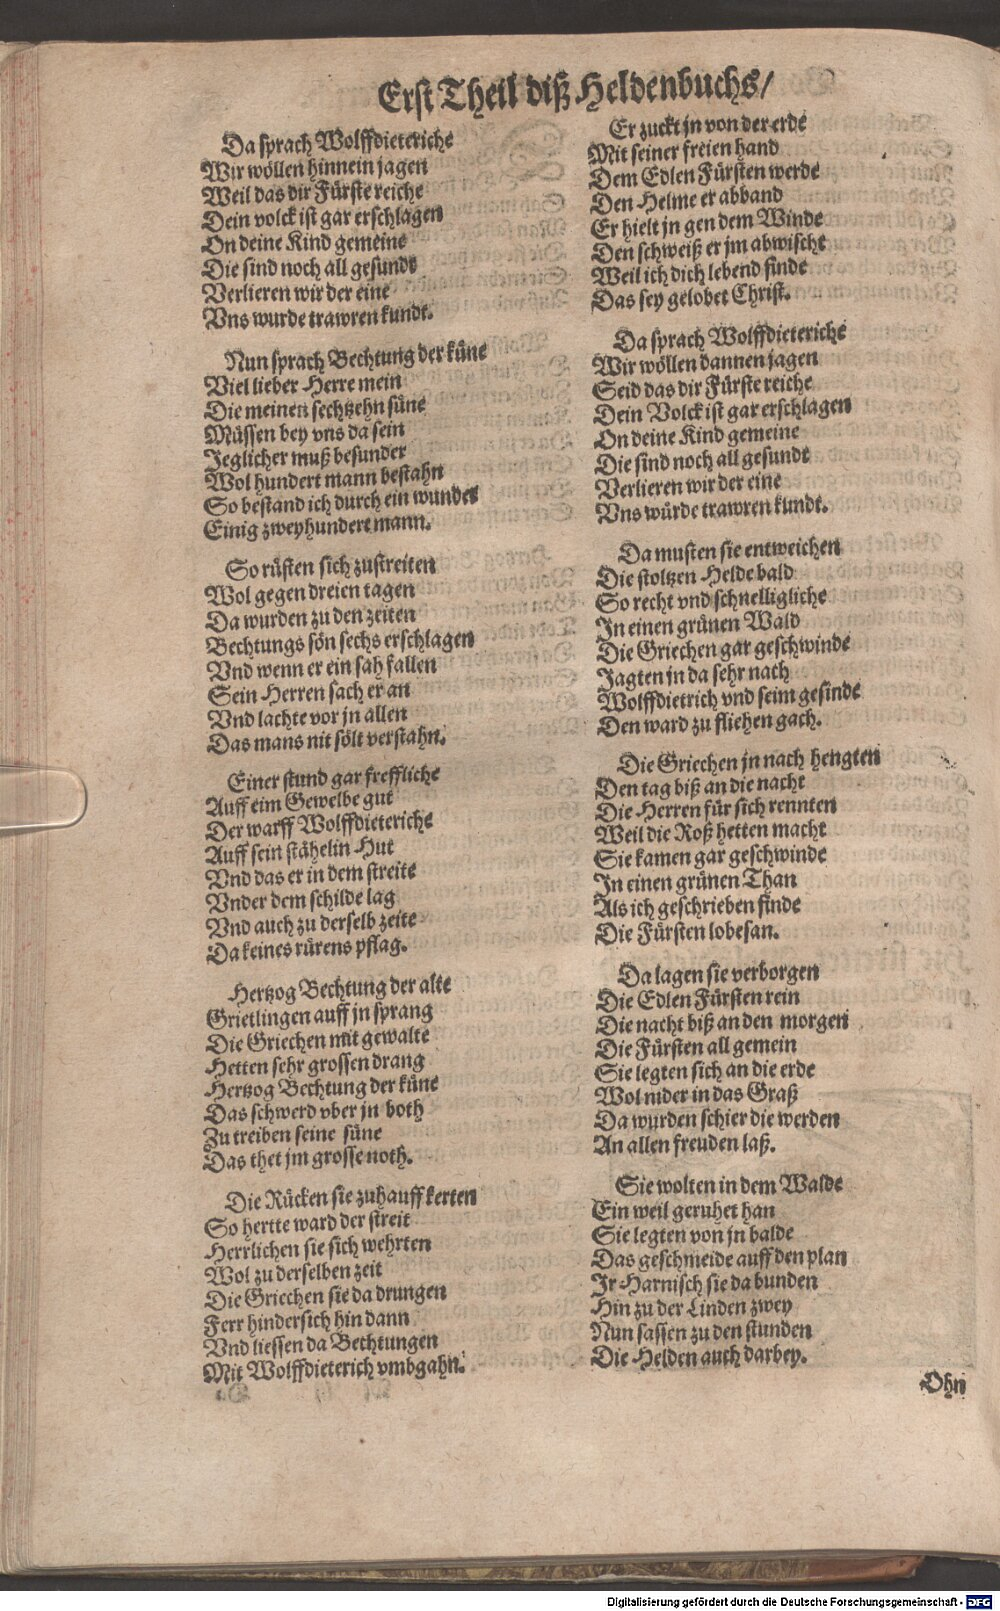 Erst Theil diß Heldenbuchs/
Da sprach Wolffdieteriche
Wir wöllen hinnein jagen
Weil das dir Fürste reiche
Dein volck ist gar erschlagen
On deine Kind gemeine
Die sind noch all gesundt
Verlieren wir der eine
Vns wurde trawren kundt.
Nun sprach Bechtung der küne
Viel lieber Herre mein
Die meinen sechtzehn süne
Müssen bey vns da sein
Jeglicher muß besunder
Wol hundert mann bestahn
So bestand ich durch ein wunder
Einig zweyhundert mann.
So rüsten sich zustreiten
Wol gegen dreien tagen
Da wurden zu den zeiten
Bechtungs sön sechs erschlagen
Vnd wenn er ein sah fallen
Sein Herren sach er an
Vnd lachte vor jn allen
Das mans nit sölt verstahn.
Einer stund gar freffliche
Auff eim Gewelbe gut
Der warff Wolffdieteriche
Auff sein stähelin Hut
Vnd das er in dem streite
Vnder dem schilde lag
Vnd auch zu derselb zeite
Da keines rürens pflag.
Hertzog Bechtung der alte
Grietlingen auff jn sprang
Die Griechen mit gewalte
Hetten sehr grossen drang
Hertzog Bechtung der küne
Das schwerd vber jn both
Zu treiben seine süne
Das thet jm grosse noth.
Die Rücken sie zuhauff kerten
So hertte ward der streit
Herrlichen sie sich wehrten
Wol zu derselben zeit
Die Griechen sie da drungen
Ferr hindersich hin dann
Vnd liessen da Bechtungen
Mit Wolffdieterich vmbgahn.
Er zuckt jn von der erde
Mit seiner freien hand
Dem Edlen Fürsten werde
Den Helme er abband
Er hielt jn gen dem Winde
Den schweiß er jm abwischt
Weil ich dich lebend finde
Das sey gelobet Christ.
Da sprach Wolffdieteriche
Wir wöllen dannen jagen
Seid das dir Fürste reiche
Dein Volck ist gar erschlagen
On deine Kind gemeine
Die sind noch all gesundt
Verlieren wir der eine
Vns würde trawren kundt.
Da musten sie entweichen
Die stoltzen Helde bald
So recht vnd schnelligliche
In einen grünen Wald
Die Griechen gar geschwinde
Jagten jn da sehr nach
Wolffdietrich vnd seim gesinde
Den ward zu fliehen gach.
Die Griechen jn nach hengten
Den tag biß an die nacht
Die Herren für sich rennten
Weil die Roß hetten macht
Sie kamen gar geschwinde
In einen grünen Than
Als ich geschrieben finde
Die Fürsten lobesan.
Da lagen sie verborgen
Die Edlen Fürsten rein
Die nacht biß an den morgen
Die Fürsten all gemein
Sie legten sich an die erde
Wol nider in das Graß
Da wurden schier die werden
An allen freuden laß.
Sie wolten in dem Walde
Ein weil geruhet han
Sie legten von jn balde
Das geschmeide auff den plan
Ir Harnisch sie da bunden
Hin zu der Linden zwey
Nun sassen zu den stunden
Die Helden auch darbey.
Ohn
Digitalisierung gefördert durch die Deutsche Forschungsgemeinschaft - DFG